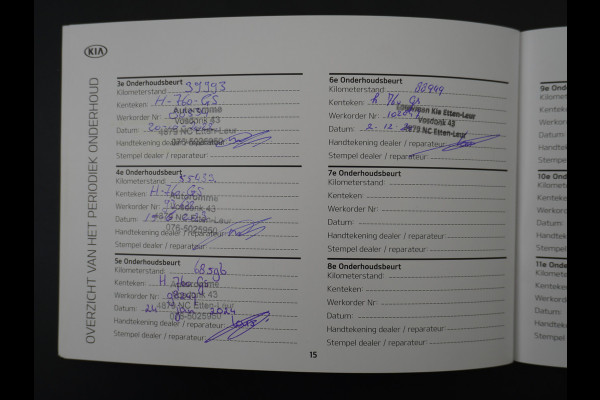 KIA
OVERZICHT VAN HET PERIODIEK ONDERHOUD
3e Onderhoudsbeurt
Kilometerstand: 39993
Kenteken: H-760-GS
Werkorder Nr:
Datum:
Handtekening dealer / reparateur:
Stempel dealer / reparateur:
Autorumme
Vosdonk 43
4879 NC Etten-Leur
076-5025950
4e Onderhoudsbeurt
Kilometerstand:
Kenteken: H-760-GS
Werkorder Nr:
Datum:
Handtekening dealer / reparateur:
Stempel dealer / reparateur:
Autorumme
Vosdonk 43
4879 NC Etten-Leur
076-5025950
5e Onderhoudsbeurt
Kilometerstand: 68596
Kenteken: H 760 GS
Werkorder Nr:
Datum: 24 jan 2024
Handtekening dealer / reparateur:
Stempel dealer / reparateur:
Autorumme
Vosdonk 43
4879 NC Etten-Leur
076-5025950
6e Onderhoudsbeurt
Kilometerstand: 80999
Kenteken: H 760 GS
Werkorder Nr:
Datum: 2-12
Handtekening dealer / reparateur:
Stempel dealer / reparateur:
Kia Etten-Leur
Vosdonk 43
4879 NC Etten-Leur
7e Onderhoudsbeurt
Kilometerstand:
Kenteken:
Werkorder Nr:
Datum:
Handtekening dealer / reparateur:
Stempel dealer / reparateur:
8e Onderhoudsbeurt
Kilometerstand:
Kenteken:
Werkorder Nr:
Datum:
Handtekening dealer / reparateur:
Stempel dealer / reparateur:
15
9e Ond
Kilomet
Kenteke
Werkord
Datum:
Handtek
Stempel
10e Ond
Kilomet
Kenteke
Werkord
Datum:
Handtek
Stempel
11e Onde
Kilomete
Kenteken
Werkord
Datum:
Handtek
Stempel